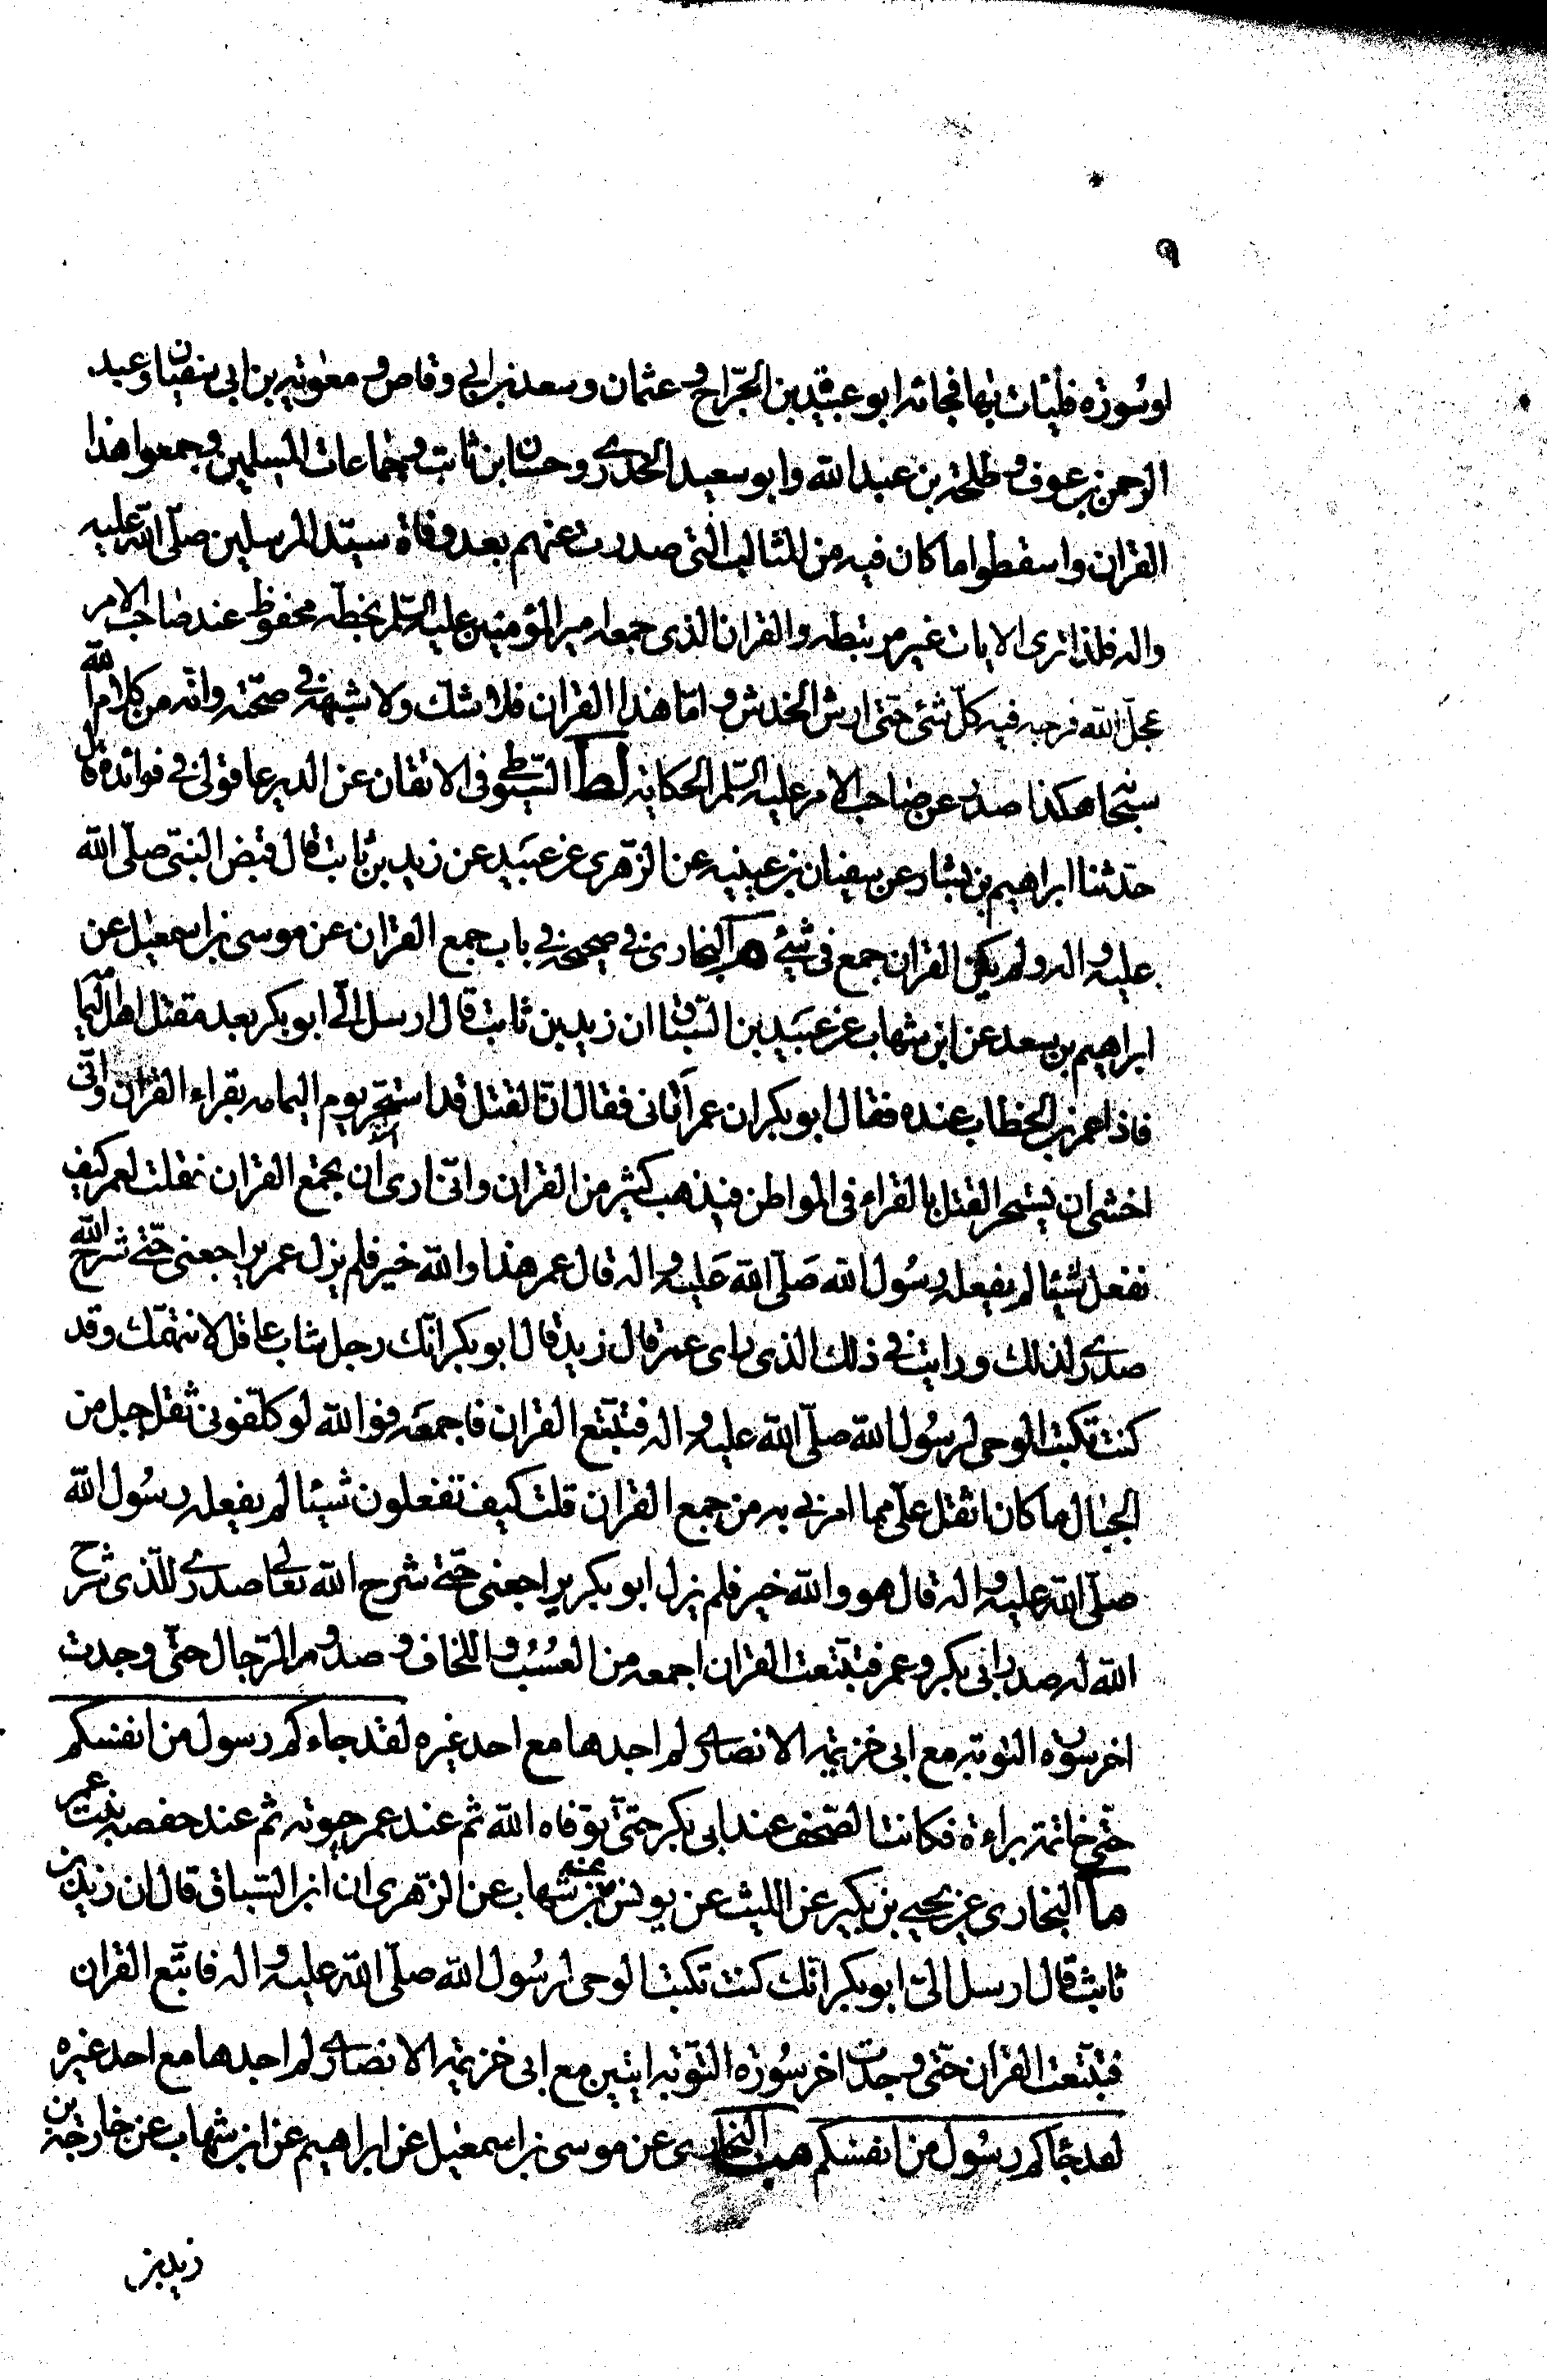 ٩
او سورة فليأت بها فجائه ابو عبيدة بن الجراح و عثمان و سعد بن ابي وقاص و معوية بن ابي سفيان و عبد
الرحمن بن عوف و طلحة بن عبد الله و ابو سعيد الخدري و حسان بن ثابت و جماعات المسلمين و جمعوا هذا
القران و اسقطوا ما كان فيه من المثالب التي صدرت عنهم بعد وفاة سيد المرسلين صلى الله عليه
واله فلذا ترى الايات غير مرتبطه والقران الذي جمعه امير المؤمنين عليه السلم بخطه محفوظ عند صاحب الامر
عجل الله فرجه فيه كل شئ حتى ارش الخدش و اما هذا القران فلا شك ولا شبهة في صحته وانه من كلام الله
سبحانه هكذا صدر عن صاحب الامر عليه السلم الحكاية لط السيوطي في الاتقان عن الدير عاقولي في فوائده قال
حدثنا ابراهيم بن بشار عن سفيان بن عيينه عن الزهري عن عبيد عن زيد بن ثابت قال قبض النبي صلى الله
عليه واله ولم يكن القران جمع في شئ م البخاري في صحيحه في باب جمع القران عن موسى بن اسمعيل عن
ابراهيم بن سعد عن ابن شهاب عن عبيد بن السباق ان زيد بن ثابت قال ارسل الى ابو بكر بعد مقتل اهل اليما
فاذا عمر بن الخطاب عنده فقال ابو بكر ان عمر آتاني فقال ان القتل قد استحر يوم اليمامه بقراء القران و اني
اخشى ان يستحر القتل بالقراء في المواطن فيذهب كثير من القران و اني ارى ان يجمع القران فقلت لعمر كيف
نفعل شيئا لم يفعله رسول الله صلى الله عليه واله قال عمر هذا والله خير فلم يزل عمر يراجعني حتى شرح الله
صدري لذلك و رايت في ذلك الذي راى عمر قال زيد قال ابو بكر انك رجل شاب عاقل لا نتهمك وقد
كنت تكتب الوحى لرسول الله صلى الله عليه واله فتتبع القران فاجمعه فوالله لو كلفوني ثقل جبل من
الجبال ما كان اثقل على مما امرني به من جمع القران قلت كيف تفعلون شيئا لم يفعله رسول الله
صلى الله عليه واله قال هو والله خير فلم يزل ابو بكر يراجعني حتى شرح الله تعالى صدري للذي شرح
الله له صدر ابي بكر و عمر فتتبعت القران اجمعه من العسب و اللخاف و صدور الرجال حتى وجدت
اخر سورة التوبه مع ابي خزيمة الانصاري لم اجدها مع احد غيره لقد جاءكم رسول من انفسكم
حتى خاتمة براءة فكانت الصحف عند ابي بكر حتى توفاه الله ثم عند عمر حيوته ثم عند حفصه بنت عمر
ما البخاري عن يحيى بن بكير عن الليث عن يونس عن شهاب عن الزهري ان ابن السباق قال ان زيد بن
ثابت قال ارسل الى ابو بكر انك كنت تكتب الوحى لرسول الله صلى الله عليه واله فاتبع القران
فتتبعت القران حتى وجدت اخر سورة التوبة ايتين مع ابي خزيمة الانصاري لم اجدها مع احد غيره
لقد جاكم رسول من انفسكم مب البخاري عن موسى بن اسمعيل عن ابراهيم عن ابن شهاب عن خارجة بن
زيد بن